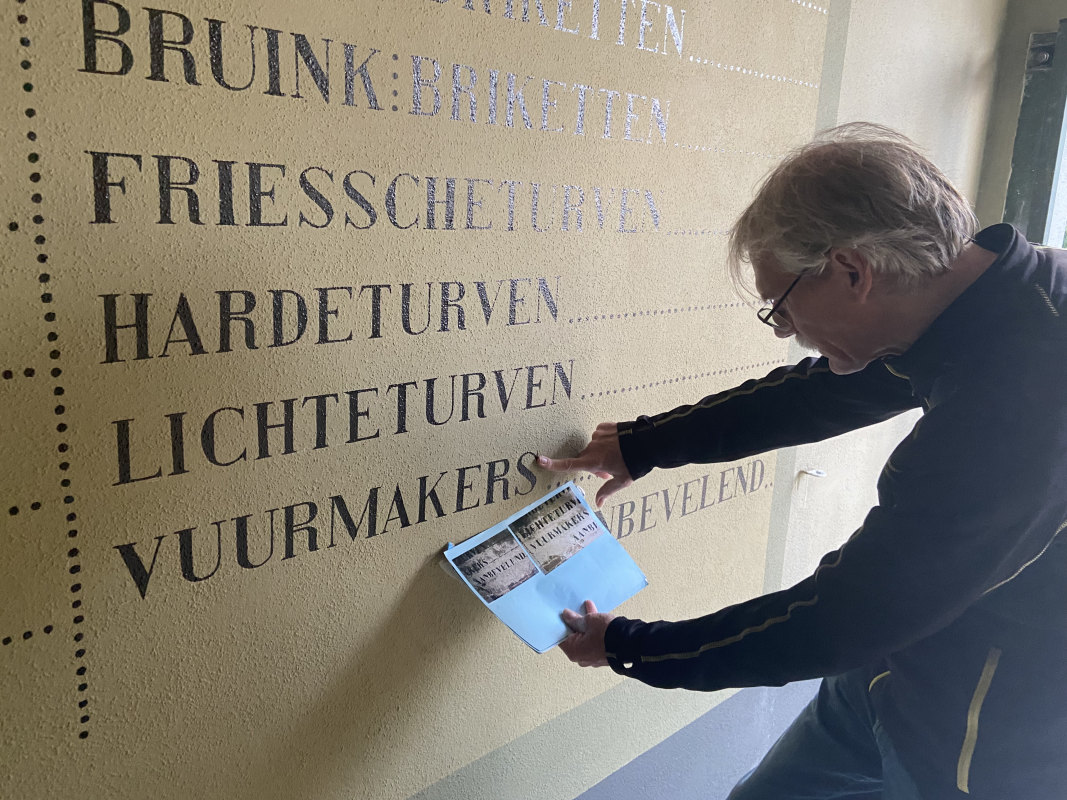 BRIKETTEN
BRUINK:BRIKETTEN
FRIESSCHETURVEN
HARDETURVEN
LICHTETURVEN
VUURMAKERS
NBEVELEND
KERS
AANBEVELEND
LICHTETURVE
VUURMAKERS
AANBE